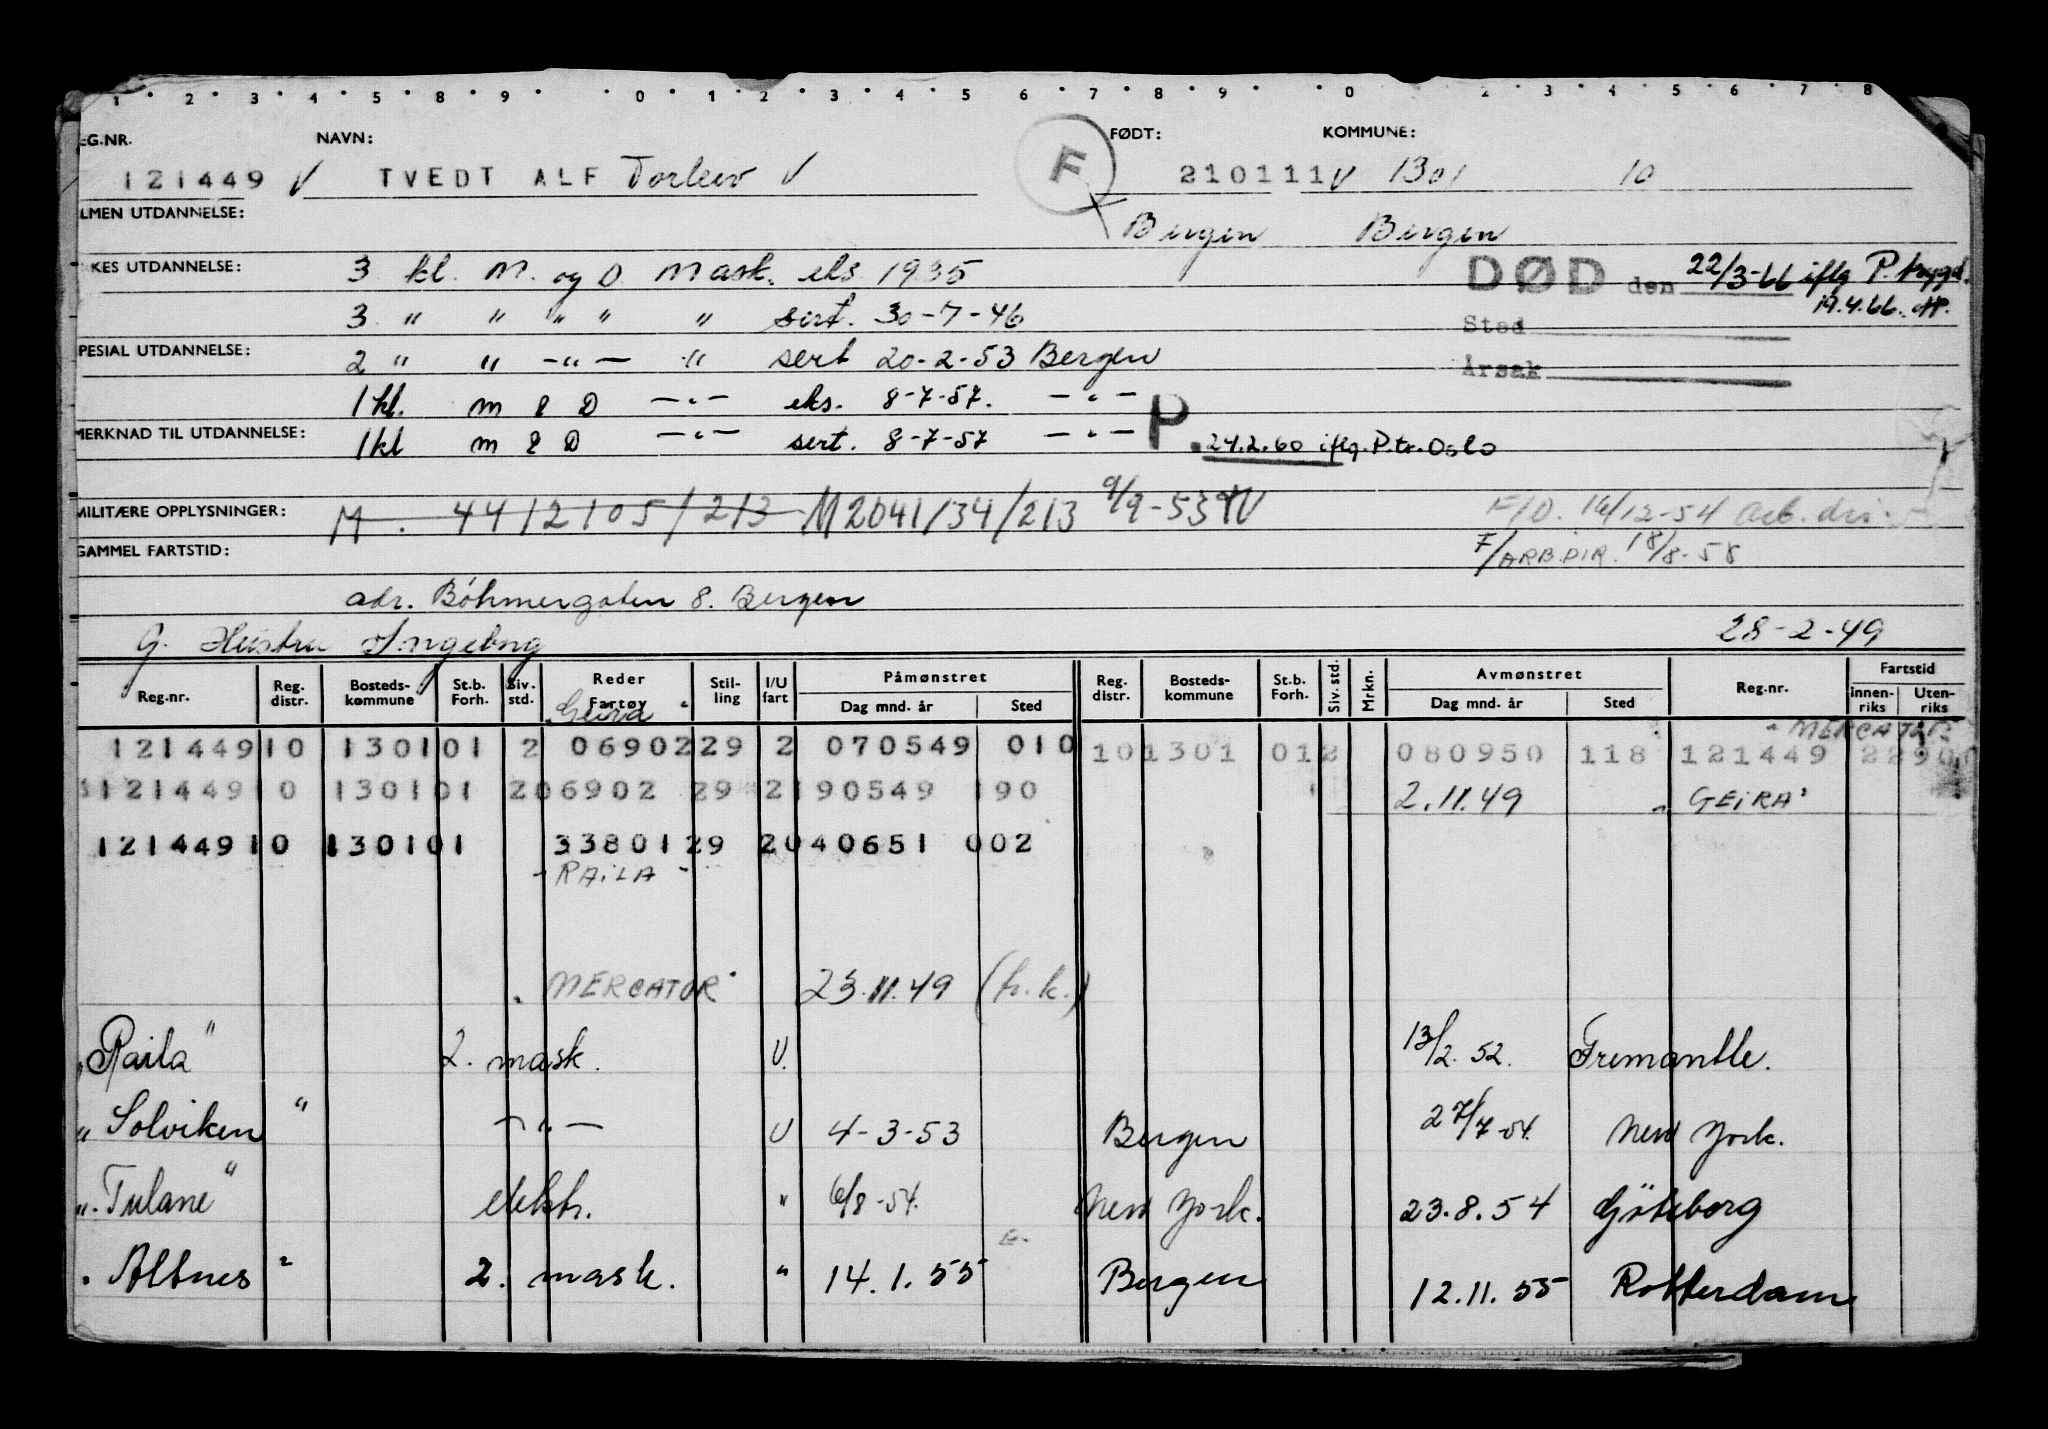 1 2 3 4 5 8 9 0 1 2 3 4 5 6 7 8 9 0 2 3 4 5 6 7 8
EG.NR. NAVN: FØDT: KOMMUNE:
121449 V TVEDT ALF Torleiv V F 210111 V 1301 10
LMEN UTDANNELSE: Bergen Bergen
KES UTDANNELSE: 3 kl. M. og D. Mask. eks 1935
DØD den 22/3-66 iflg P. trygd.
19.4.66.
3 " " " " " sert. 30-7-46
Sted
PESIAL UTDANNELSE: 2 " " -"- " sert 20-2-53 Bergen
Årsak
1 kl. m & D -"- eks. 8-7-57. -"-
MERKNAD TIL UTDANNELSE: 1 kl m & D -"- sert. 8-7-57 -"- P. 24.2.60 iflg. P.tr. Oslo
MILITÆRE OPPLYSNINGER: M. 4412105/213 M2041/34/213 9/9-53
F/D. 16/12-54 Arb. dir.
GAMMEL FARTSTID: F/ARB.DIR. 18/8-58
adr. Böhmergaten 8. Bergen
G. Hustru Ingeborg 28-2-49
Reg.nr. Reg. distr. Bosteds-kommune St.b. Forh. Siv. std. Reder Fartøy Stil-ling I/U fart Påmønstret Dag mnd. år Sted Reg. distr. Bosteds-kommune St.b. Forh. Siv. std. Mrkn. Avmønstret Dag mnd. år Sted Reg.nr. Fartstid Innen-riks Uten-riks
Geira "
"MERCATOR"
121449 10 1301 01 2 06902 29 2 070549 010 10 1301 01 2 080950 118 121449 22900
121449 10 1301 01 2 06902 29 2 190549 190 2.11.49 "GEIRA"
121449 10 1301 01 33801 29 2 040651 002
-RAILA-
"MERCATOR" 23.11.49 (h.k.)
"Raila" 2. mask. U. 13/2. 52. Fremantle.
"Solviken" -"- U 4-3-53 Bergen 27/7-54. New York.
"Tulane" elektr. " 6/8-54. New York. 23.8.54 Göteborg
"Altnes" 2. mask. " 14.1.55 Bergen 12.11.55 Rotterdam